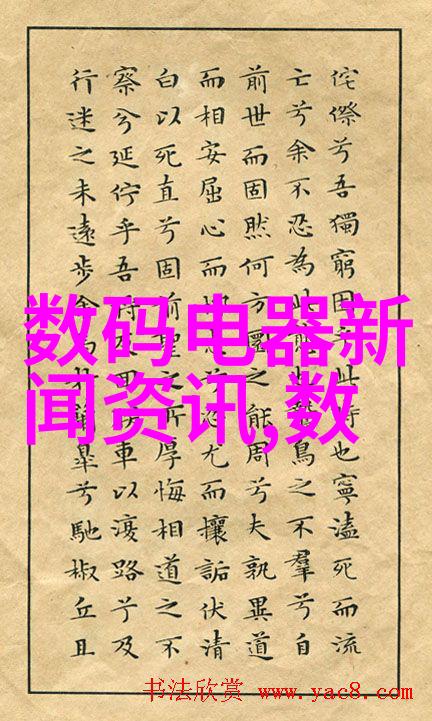 侘傺兮吾獨窮困乎此時也寧溘死而流
亡兮余不忍為此態也鷙鳥之不羣兮自
前世而固然何方圜之能周兮夫孰異道
而相安屈心而抑志兮忍尤而攘詬伏清
白以死直兮固前聖之所厚悔相道之不
察兮延佇乎吾將車以復路兮及
行迷之未遠步余馬於蘭皋兮馳椒丘且
数码电器新
闻资讯,数
书法欣赏 www.yac8.com